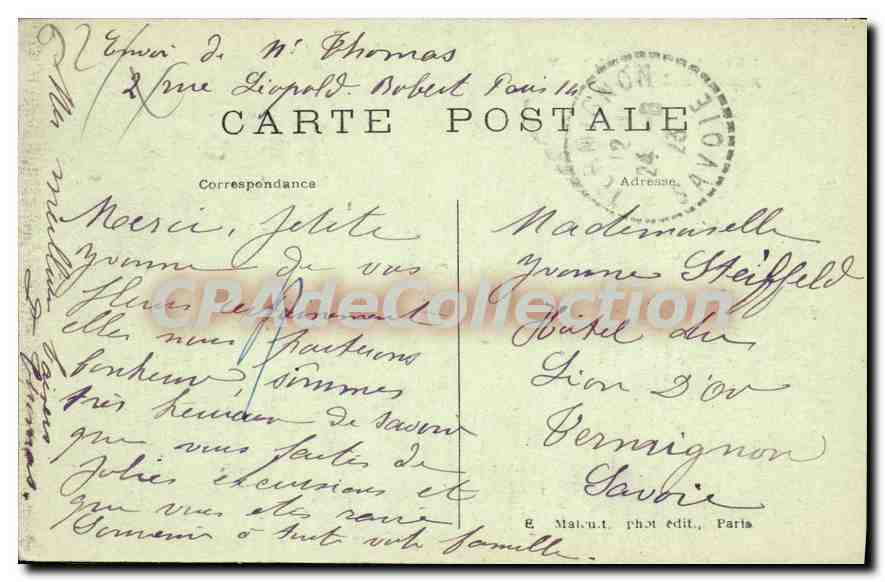 Envoi de Mr Thomas
2 rue Léopold-Robert Paris 14
CARTE POSTALE
TERMIGNON
12
24 - 8
23
SAVOIE
Correspondance
Adresse
Merci, petite
Yvonne de vos
fleurs certainement
elles nous porterons
bonheur, sommes
très heureux de savoir
que vous faites de
jolies excursions et
que vous etes ravie
Souvenir à toute votre famille.
Mes meilleurs baisers
J. Thomas.
Mademoiselle
Yvonne Steiffeld
Hôtel du
Lion D'Or
Termignon
Savoie
phot édit., Paris
CPAdeCollection